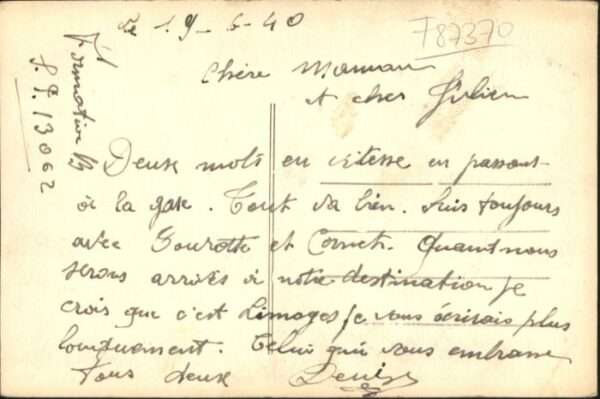 Le 19-6-40
F87370
Formation
S.P. 13062
Chère Maman
et cher Julien
Deux mots en vitesse en passant
à la gare. Tout va bien. Suis toujours
avec Gourotte et Cornet. Quant nous
serons arrivés à notre destination je
crois que c'est Limoges je vous écrirais plus
longuement. Celui qui vous embrasse
tous deux Denise